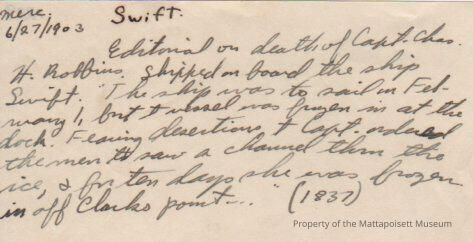 Merc.
6/27/1903
Swift.
Editorial on death of Capt. Chas.
H. Robbins, shipped on board the ship
Swift. "The ship was to sail in Feb-
ruary 1, but t vessel was frozen in at the
dock. Fearing desertions t Capt. ordered
the men to saw a channel thru the
ice, & for ten days she was frozen
in off Clarks point..." (1837)
Property of the Mattapoisett Museum